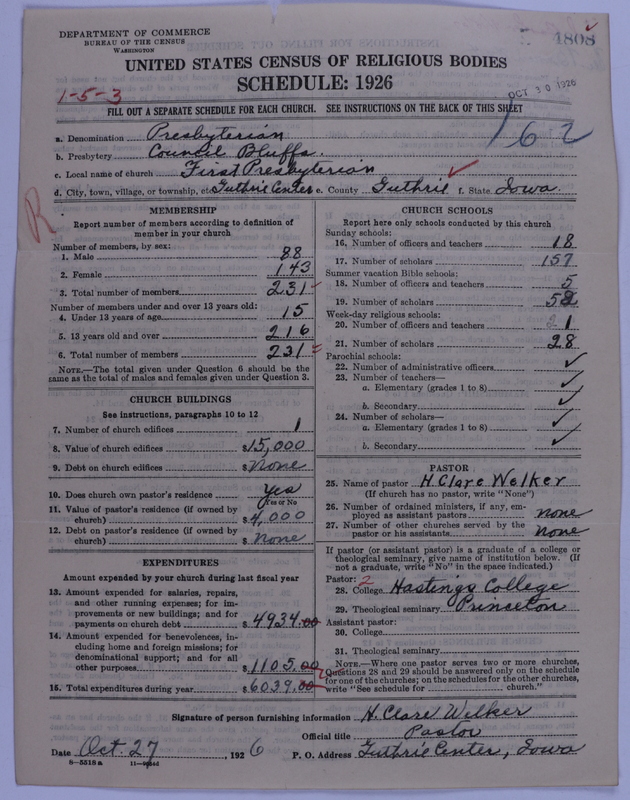 DEPARTMENT OF COMMERCE
BUREAU OF THE CENSUS
WASHINGTON
4808
UNITED STATES CENSUS OF RELIGIOUS BODIES
SCHEDULE: 1926
1-5-3
OCT 30 1926
FILL OUT A SEPARATE SCHEDULE FOR EACH CHURCH. SEE INSTRUCTIONS ON THE BACK OF THIS SHEET
162
a. Denomination Presbyterian
b. Presbytery Council Bluffs
c. Local name of church First Presbyterian
d. City, town, village, or township, etc. Guthrie Center e. County Guthrie f. State Iowa.
R
MEMBERSHIP
Report number of members according to definition of
member in your church
Number of members, by sex:
1. Male 88
2. Female 143
3. Total number of members 231
Number of members under and over 13 years old:
4. Under 13 years of age 15
5. 13 years old and over 216
6. Total number of members 231
NOTE.—The total given under Question 6 should be the
same as the total of males and females given under Question 3.
CHURCH BUILDINGS
See instructions, paragraphs 10 to 12
7. Number of church edifices 1
8. Value of church edifices $15,000
9. Debt on church edifices $None
10. Does church own pastor's residence Yes
(Yes or No)
11. Value of pastor's residence (if owned by
church) $4,000
12. Debt on pastor's residence (if owned by
church) $None
EXPENDITURES
Amount expended by your church during last fiscal year
13. Amount expended for salaries, repairs,
and other running expenses; for im-
provements or new buildings; and for
payments on church debt $4934.00
14. Amount expended for benevolences, in-
cluding home and foreign missions; for
denominational support; and for all
other purposes $1105.00
15. Total expenditures during year $6039.00
CHURCH SCHOOLS
Report here only schools conducted by this church
Sunday schools:
16. Number of officers and teachers 18
17. Number of scholars 157
Summer vacation Bible schools:
18. Number of officers and teachers 5
19. Number of scholars
Week-day religious schools:
20. Number of officers and teachers 1
21. Number of scholars 28
Parochial schools:
22. Number of administrative officers ✓
23. Number of teachers—
a. Elementary (grades 1 to 8) ✓
b. Secondary ✓
24. Number of scholars—
a. Elementary (grades 1 to 8) ✓
b. Secondary ✓
PASTOR
25. Name of pastor H. Clare Welker
(If church has no pastor, write "None")
26. Number of ordained ministers, if any, em-
ployed as assistant pastors none
27. Number of other churches served by the
pastor or his assistants none
If pastor (or assistant pastor) is a graduate of a college or
theological seminary, give name of institution below. (If
not a graduate, write "No" in the space indicated.)
Pastor: 2
28. College Hastings College
29. Theological seminary Princeton
Assistant pastor:
30. College
31. Theological seminary
NOTE.—Where one pastor serves two or more churches,
Questions 28 and 29 should be answered only on the schedule
for one of the churches; on the schedules for the other churches,
write "See schedule for church."
Signature of person furnishing information H. Clare Welker
Official title Pastor
Date Oct. 27, 1926 P. O. Address Guthrie Center, Iowa
8-5518a